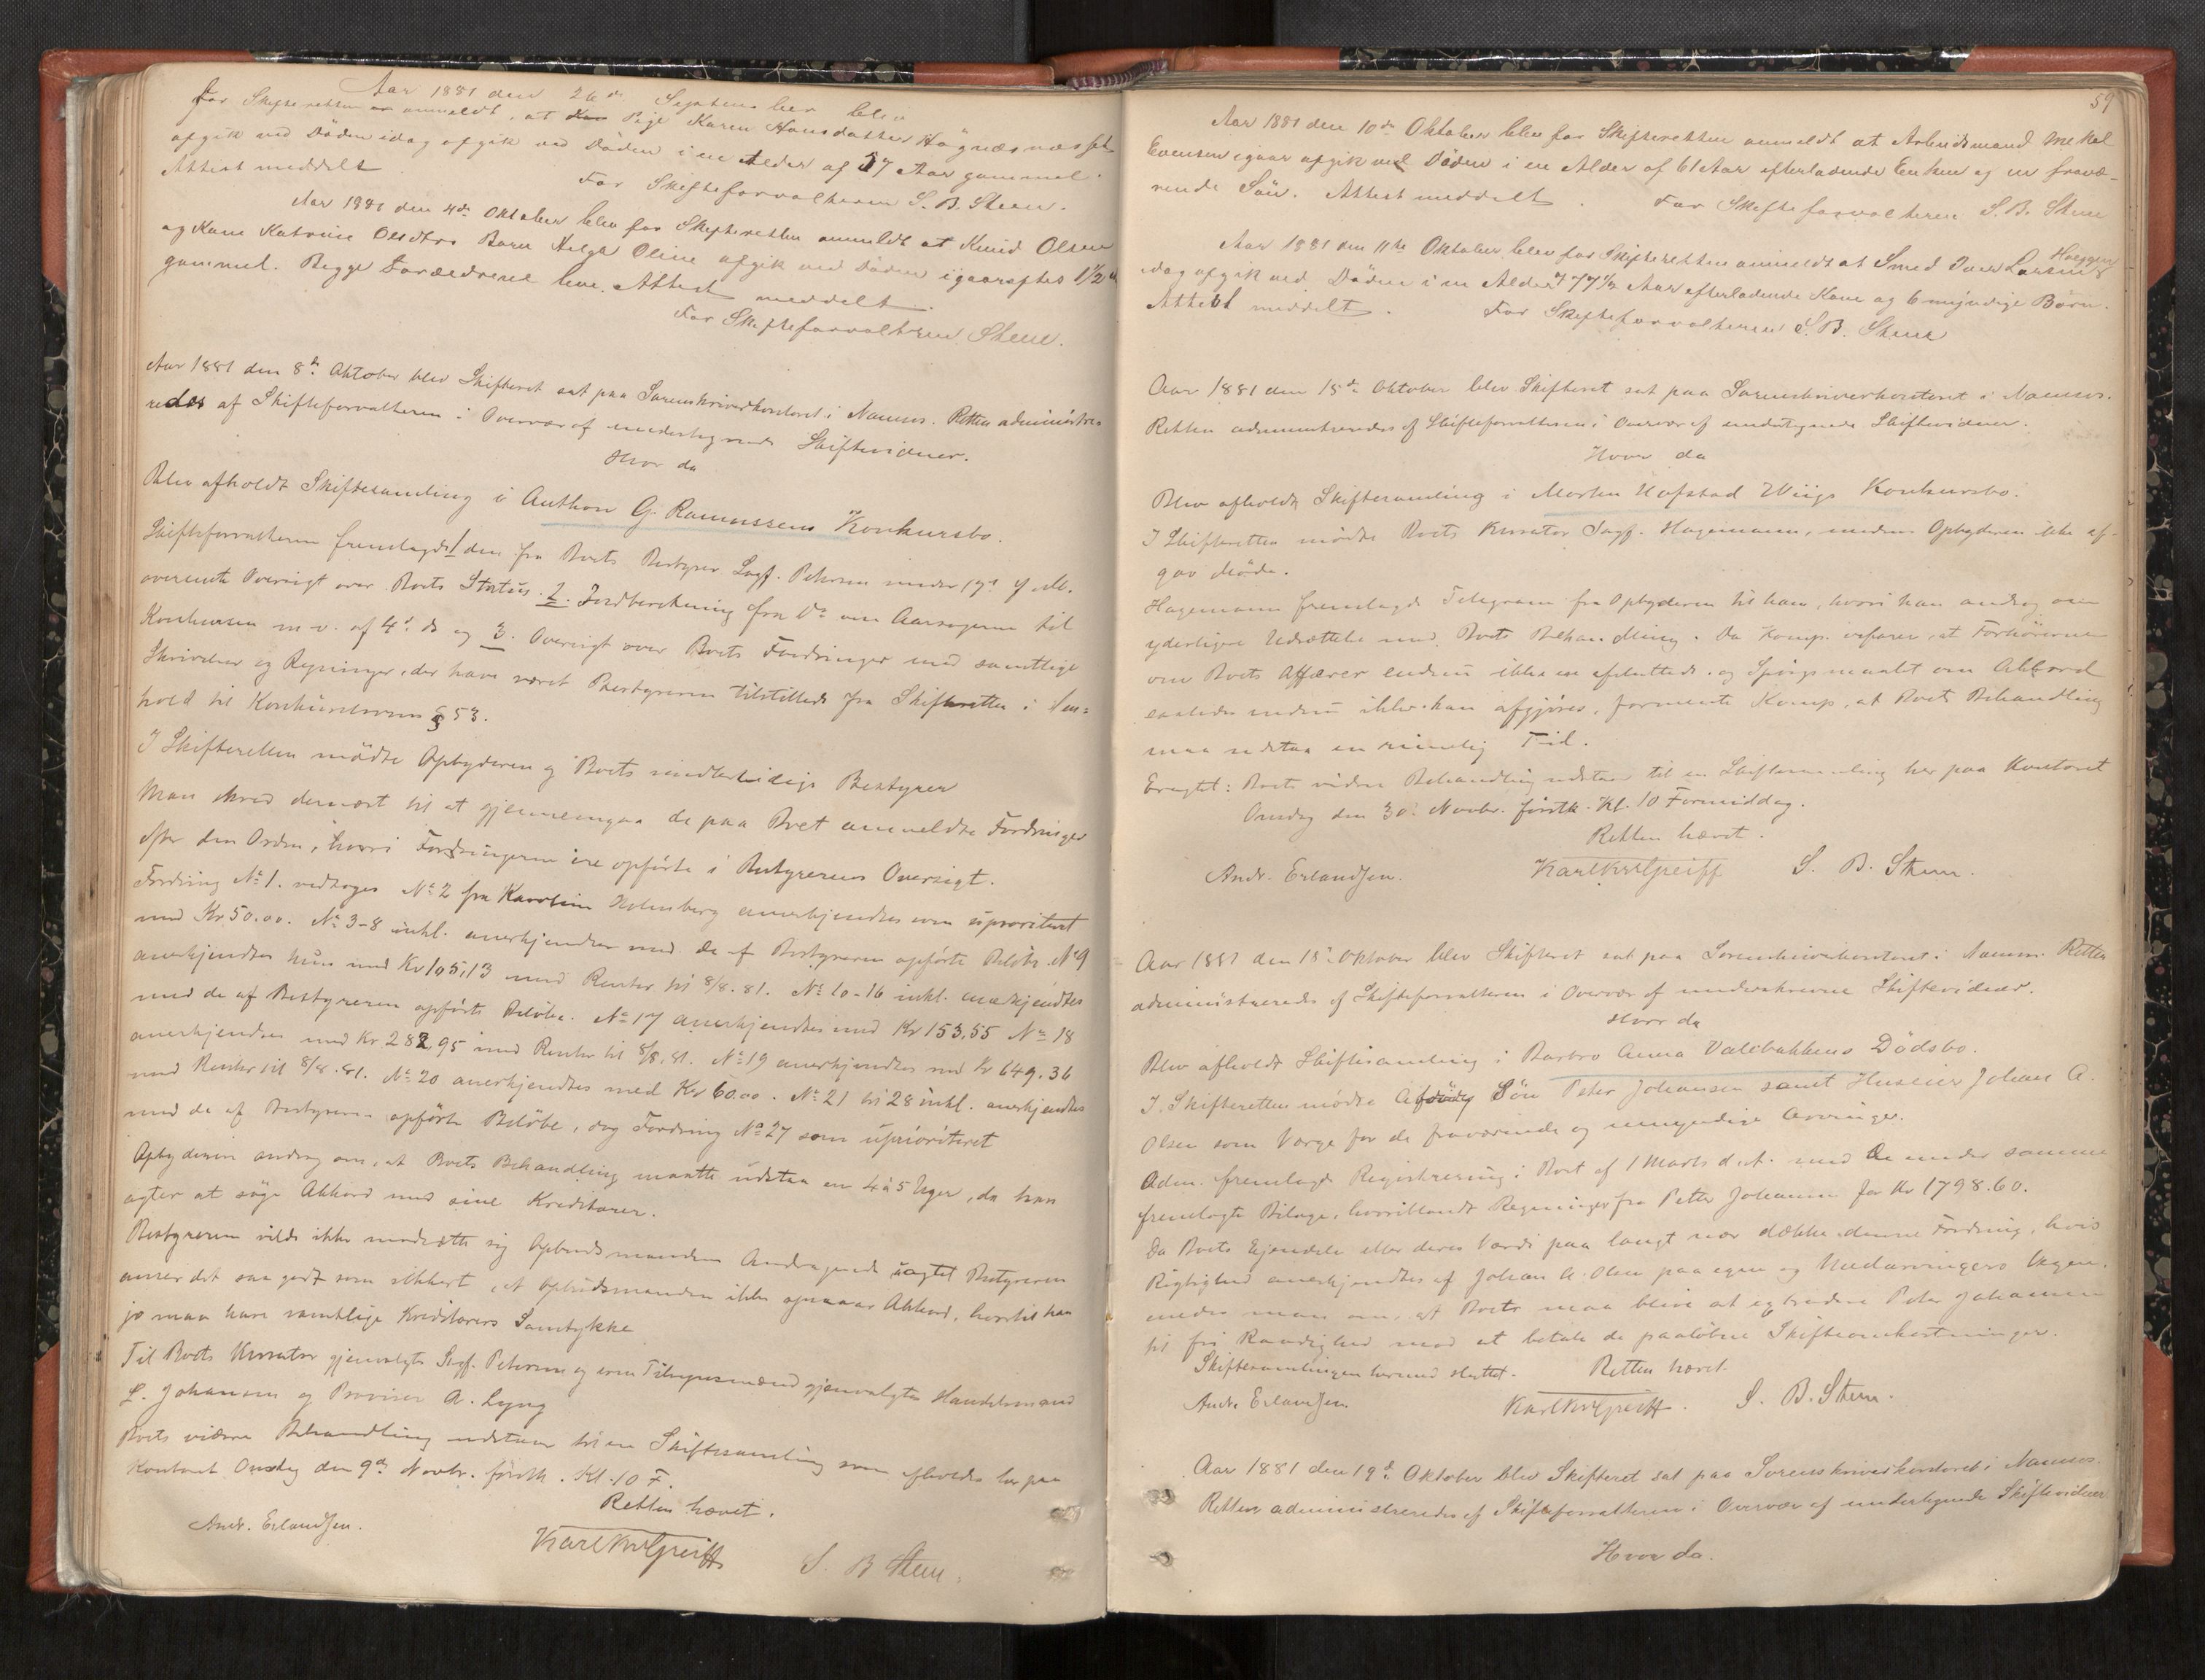 Aar 1881 den 26de September blev
for Skifteretten anmeldt, at Pige Karen Hansdatter Høgnæsnæsset
afgik ved Døden idag afgik ved Døden i en Alder af 57 Aar gammel.
Attest meddelt
For Skifteforvalteren S. B. Steen.
Aar 1881 den 4de Oktober blev for Skifteretten anmeldt at Knud Olsen
og Kone Katrine Olsdtrs Barn Helga Oline afgik ved Døden igaaraftes 1 1/2
gammel. Begge Foræeldrene leve. Attest meddelt.
For Skifteforvalteren Steen.
Aar 1881 den 8de Oktober blev Skifteret sat paa Sorenskriverkontoret i Namsos. Retten administre-
redes af Skifteforvalteren i Overvær af undertegnede Skiftevidner.
Hvor da
Blev afholdt Skiftesamling i Anthon G. Rasmussens Konkursbo.
Skifteforvalteren fremlagde 1 den fra Boets Bestyrer Sagf. Petersen under 17de f. M.
oversendte Oversigt over Boets Status. 2. Indberetning fra Do om Aarsagerne til
Konkursen m.v. af 4de ds og 3. Oversigt over Boets Fordringer med samtlige
Skrivelser og Regninger, der have været Bestyreren tilstillede fra Skifteretten i Hen-
hold til Konkurslovens § 53.
I Skifteretten mødte Opbyderen og Boets midlertidige Bestyrer
Man skred dernæst til at gjennemgaa de paa Boet anmeldte Fordringer
efter den Orden, hvori Fordringerne ere opførte i Bestyrerens Oversigt.
Fordring No 1. vedtoges No 2 fra Karoline Holmberg anerkjendtes som uprioritert
med Kr 50.00. No 3-8 inkl. anerkjendtes med de af Bestyreren opførte Beløbe. No 9
anerkjendtes kun med Kr 105,13 med Renter til 8/8.81. No 10-16 inkl. anerkjendtes
med de af Bestyreren opførte Beløbe. No 17 anerkjendtes med Kr 153,55 No 18
anerkjendtes med Kr 282,95 med Renter til 8/8.81. No 19 anerkjendtes med Kr 649.36
med Renter til 8/8.81. No 20 anerkjendtes med Kr 60.00. No 21 til 28 inkl. anerkjendtes
med de af Bestyreren opførte Beløbe, dog Fordring No 27 som uprioriteret
Opbyderen androg om, at Boets Behandling maatte udstaa en 4 à 5 Uger, da han
agter at søge Akkord med sine Kreditorer.
Bestyreren vilde ikke modsætte sig Opbudsmandens Andragende uagtet Bestyreren
anser det saa godt som sikkert, at Opbudsmanden ikke opnaar Akkord, hvortil han
jo maa have samtlige Kreditorers Samtykke
Til Boets Kurator gjenvalgtes Sagf. Petersen og som Tilsynsmænd gjenvalgtes Handelsmand
L. Johansen og Provisor A. Lyng
Boets videre Behandling udstaar til en Skiftesamling som afholdes her paa
Kontoret Onsdag den 9de Novbr. førstk. Kl. 10 F.
Retten hævet.
Andr. Erlandsen.
Karl Kr Greiff
S. B Steen.
59
Aar 1881 den 10de Oktober blev for Skifteretten anmeldt at Arbeidsmand Mekal
Evensen igaar afgik ved Døden i en Alder af 61 Aar efterladende Enken og en fravæ-
rende Søn. Attest meddelt.
For Skifteforvalteren S. B. Steen
Aar 1881 den 11te Oktober blev for Skifteretten anmeldt at Smed Iver Larsen Hæggen
idag afgik ved Døden i en Alder af 77 1/2 Aar efterladende Kone og 6 myndige Børn.
Attest meddelt.
For Skifteforvalteren S. B. Steen
Aar 1881 den 15de Oktober blev Skifteret sat paa Sorenskriverkontoret i Namsos.
Retten administreredes af Skifteforvalteren i Overvær af undertegnede Skiftevidner.
Hvor da
Blev afholdt Skiftesamling i Morten Hofstad Wiigs Konkursbo.
I Skifteretten mødte Boets Kurator Sagf. Hagemann, medens Opbyderen ikke af-
gav Møde.
Hagemann fremlagde Telegram fra Opbyderen til ham, hvori han androg om
yderligere Udsættelse med Boets Behandling. Da Komp. erfarer, at Forhørerne
om Boets Affærer endnu ikke ere afsluttede og Spørgsmaalet om Akkord
saaledes endnu ikke kan afgjøres, formente Komp, at Boets Behandling
maa udstaa en rimelig Tid.
Eragtet: Boets videre Behandling udstaar til en Skiftesamling her paa Kontoret
Onsdag den 30. Novbr. førstk. Kl. 10 Formiddag.
Retten hævet.
Andr. Erlandsen.
Karl Kr Greiff
S. B. Steen.
Aar 1881 den 15de Oktober blev Skifteret sat paa Sorenskriverkontoret i Namsos. Retten
administreredes af Skifteforvalteren i Overvær af underskrevne Skiftevidner.
Hvor da
Blev afholdt Skiftesamling i Barbro Anna Valebakkens Dødsbo.
I Skifteretten mødte Afdødes Søn Peter Johansen samt Huseier Johan A.
Olsen som Værge for de fraværende og umyndige Arvinger.
Adm. fremlagde Registrering i Boet af 1 Marts d. A. med de under samme
fremlagte Bilage, hvoriblandt Regninger fra Petter Johansen for Kr 1798.60.
Da Boets Eiendele eller deres Værdi paa langt nær dække denne Fordring, hvis
Rigtighed anerkjendtes af Johan A. Olsen paa egne og Medarvingers Vegne,
enedes man om, at Boets maa blive at extradere Peter Johansen
til fri Raadighed mod at betale de paaløbne Skifteomkostninger.
Skiftesamlingen hermed sluttet. Retten hævet.
Andr. Erlandsen
Karl Kr Greiff.
S. B. Steen.
Aar 1881 den 19de Oktober blev Skifteret sat paa Sorenskriverkontoret i Namsos.
Retten administreredes af Skifteforvalteren i Overvær af undertegnede Skiftevidner
Hvor da.